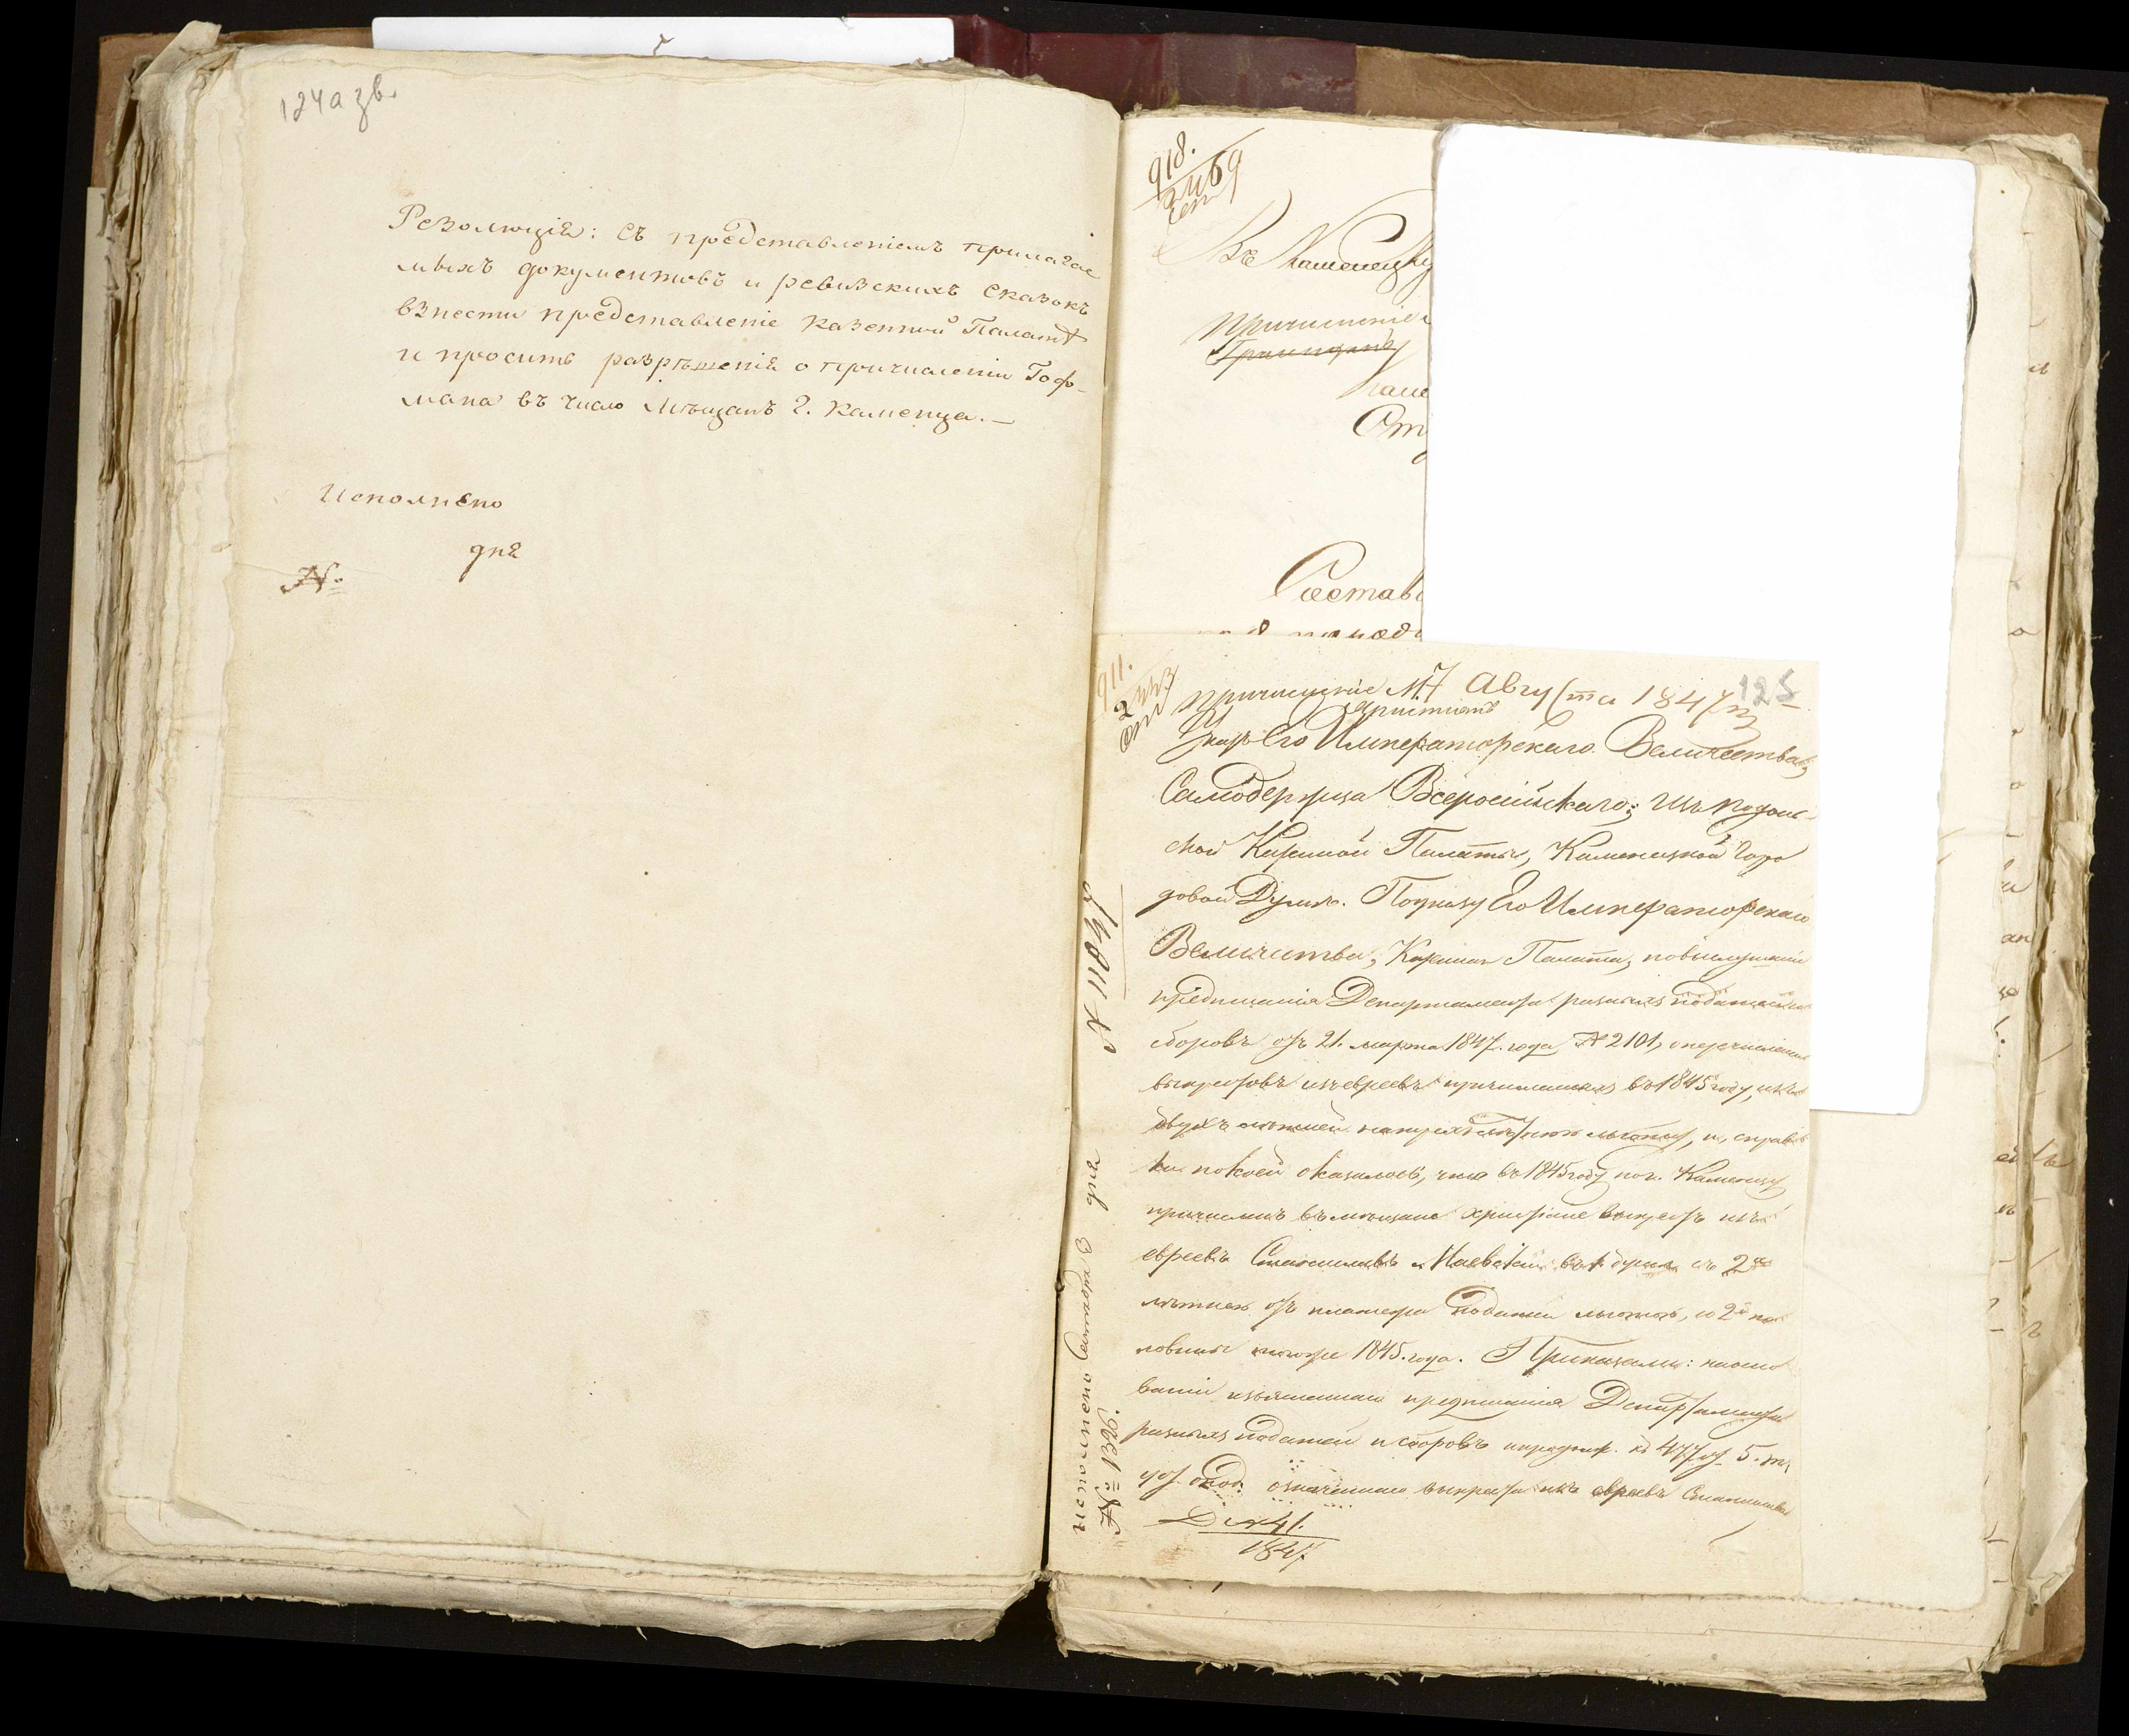 124а зв.
Резолюція: Съ представленіемъ прилагае
мыхъ документовъ и ревизскихъ сказокъ
взнести представленіе Казенной Палатѣ
и просить разрѣшенія о причисленіи Гоф-
мана въ число мѣщанъ г. Каменца.—
Исполнено
дня
№
918.
Въ Каменецку
Причисленіе
Граждан
Каме
От
Состав
911.
125
Причисленіе М. 7 Августа 1847
христианъ
Указъ Его Императорскаго Величества,
Самодержца Всероссійскаго; Изъ Подоль-
ской Казенной Палаты, Каменецкой Горо
довой Думѣ. По указу Его Императорскаго
Величества, Казенная Палата, по выслушаніи
предписанія Департамента разныхъ податей и
сборовъ отъ 21. марта 1847. года № 2101, о перечисленіи
выкрестовъ изъ евреевъ причисленныхъ въ 1845 году, изъ
двухъ лѣтней на трехлѣтнюю льготу, и, справ
ки по коей оказалось, что въ 1845 году по г. Каменцу
причисленъ въ мѣщане христіане выкрестъ изъ
евреевъ Станиславъ Маевскій въ 1 душѣ съ 2хъ
лѣтнею отъ платежа податей льготою, со 2й по
ловины 1845. года. Приказали: на осно
ваніи изъясненнаго предписанія Департамента
разныхъ податей и сборовъ и 477 ст. 5. т.
уст. о под. означеннаго выкреста изъ евреевъ Станислава
Д № 41.
1847
№ 11047
исполнено Сентября 3 дня
№ 1396.